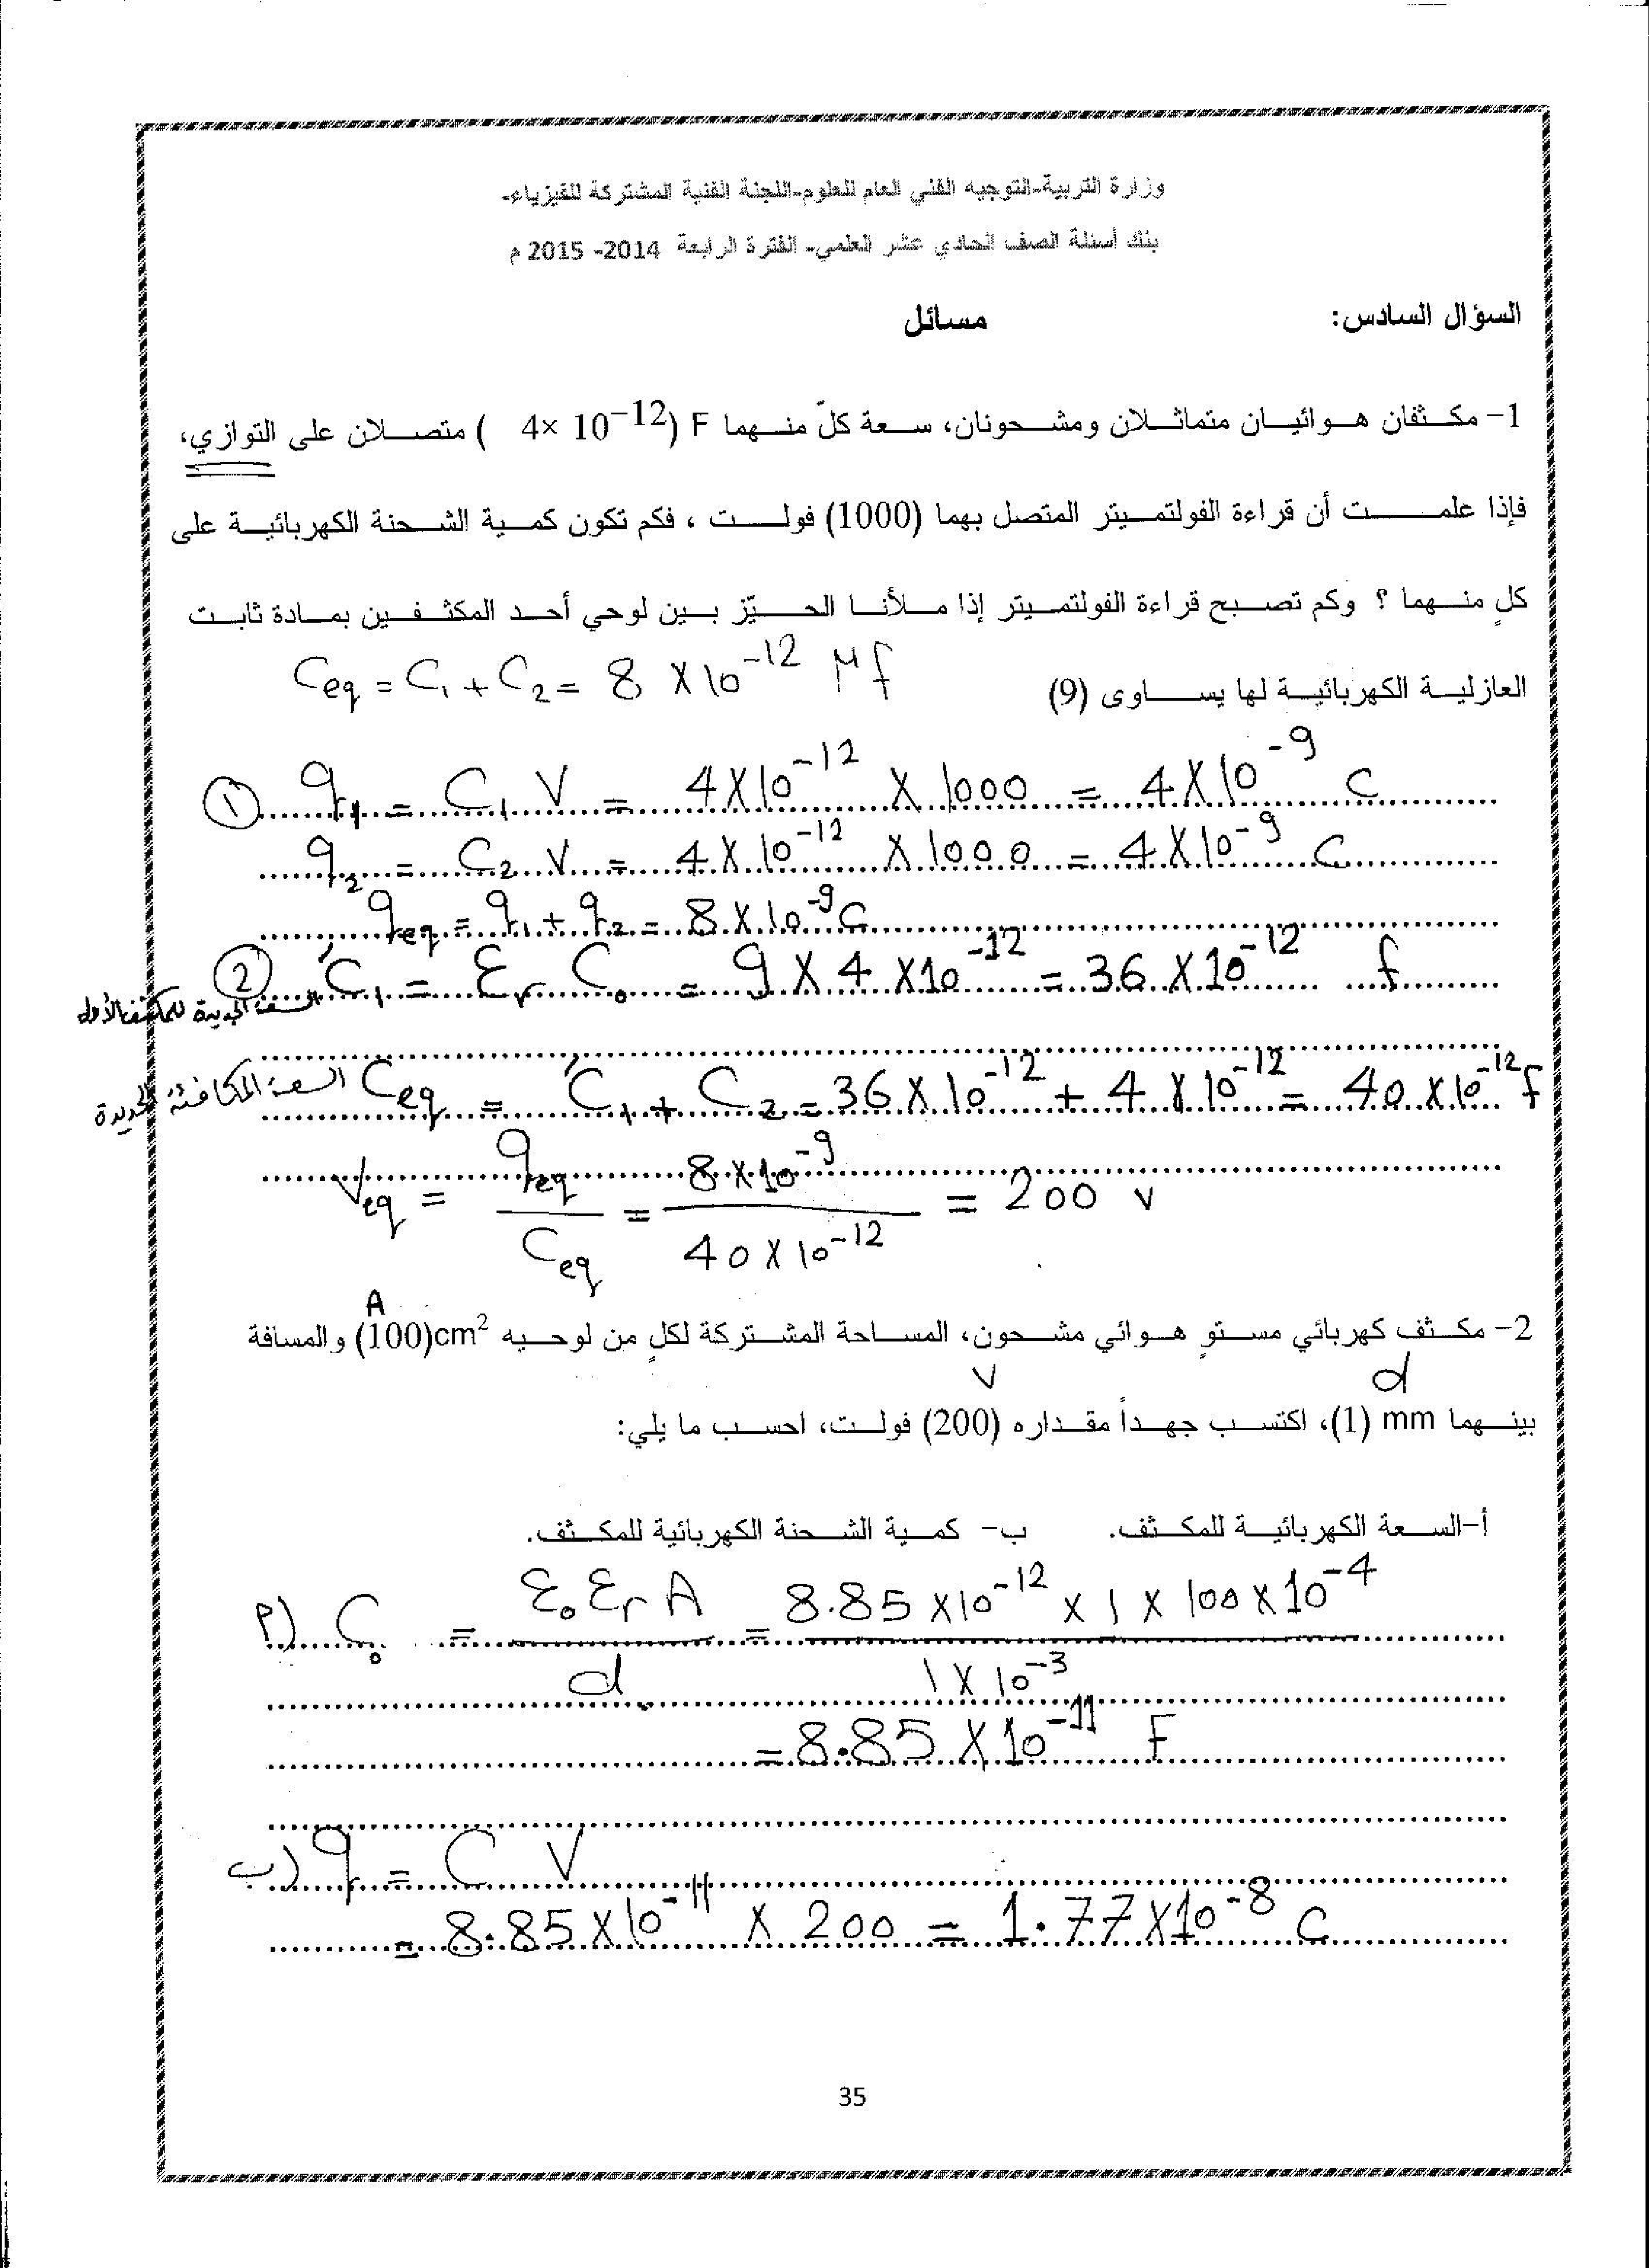 وزارة التربية-التوجيه الفني العام للعلوم-اللجنة الفنية المشتركة للفيزياء-
بنك أسئلة الصف الحادي عشر العلمي- الفترة الرابعة 2014- 2015 م
السؤال السادس: مسائل
1- مكثفان هوائيان متماثلان ومشحونان، سعة كلّ منهما F (4× 10⁻¹²) متصلان على التوازي،
فإذا علمت أن قراءة الفولتميتر المتصل بهما (1000) فولت ، فكم تكون كمية الشحنة الكهربائية على
كلٍ منهما ؟ وكم تصبح قراءة الفولتميتر إذا ملأنا الحيّز بين لوحي أحد المكثفين بمادة ثابت
العازلية الكهربائية لها يساوى (9)
Ceq = C₁ + C₂ = 8 X 10⁻¹² μf
① q₁ = C₁ V = 4X10⁻¹² X 1000 = 4X10⁻⁹ C
q₂ = C₂ V = 4X10⁻¹² X 1000 = 4X10⁻⁹ C
qeq = q₁ + q₂ = 8X10⁻⁹ C
② C₁′ = Ɛr C₀ = 9 X 4 X10⁻¹² = 36 X10⁻¹² f
السعة الجديدة للمكثف الأول
السعة المكافئة الجديدة Ceq = C₁′ + C₂ = 36X10⁻¹² + 4 X10⁻¹² = 40X10⁻¹² f
Veq = qeq / Ceq = 8X10⁻⁹ / 40X10⁻¹² = 200 v
A
2- مكثف كهربائي مستوٍ هوائي مشحون، المساحة المشتركة لكلٍ من لوحيه (100)cm² والمسافة
V d
بينهما mm (1)، اكتسب جهداً مقداره (200) فولت، احسب ما يلي:
أ-السعة الكهربائية للمكثف. ب- كمية الشحنة الكهربائية للمكثف.
أ) C₀ = Ɛ₀ Ɛr A / d = 8.85 X10⁻¹² X 1 X 100 X 10⁻⁴ / 1 X 10⁻³
= 8.85 X10⁻¹¹ F
ب) q = C V
= 8.85X10⁻¹¹ X 200 = 1.77X10⁻⁸ C
35